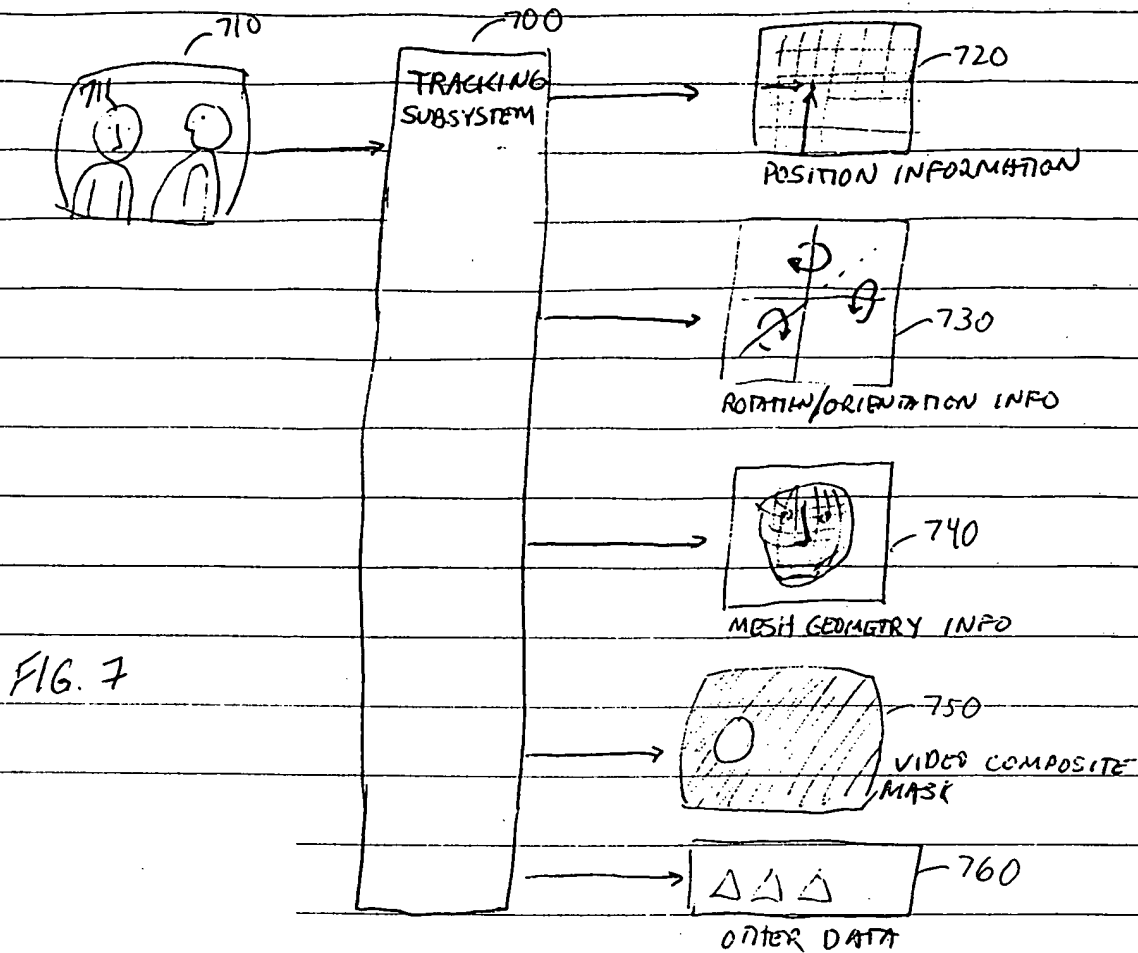 710
700
711
TRACKING
SUBSYSTEM
720
POSITION INFORMATION
730
ROTATION/ORIENTATION INFO
740
MESH GEOMETRY INFO
FIG. 7
750
VIDEO COMPOSITE
MASK
760
OTHER DATA